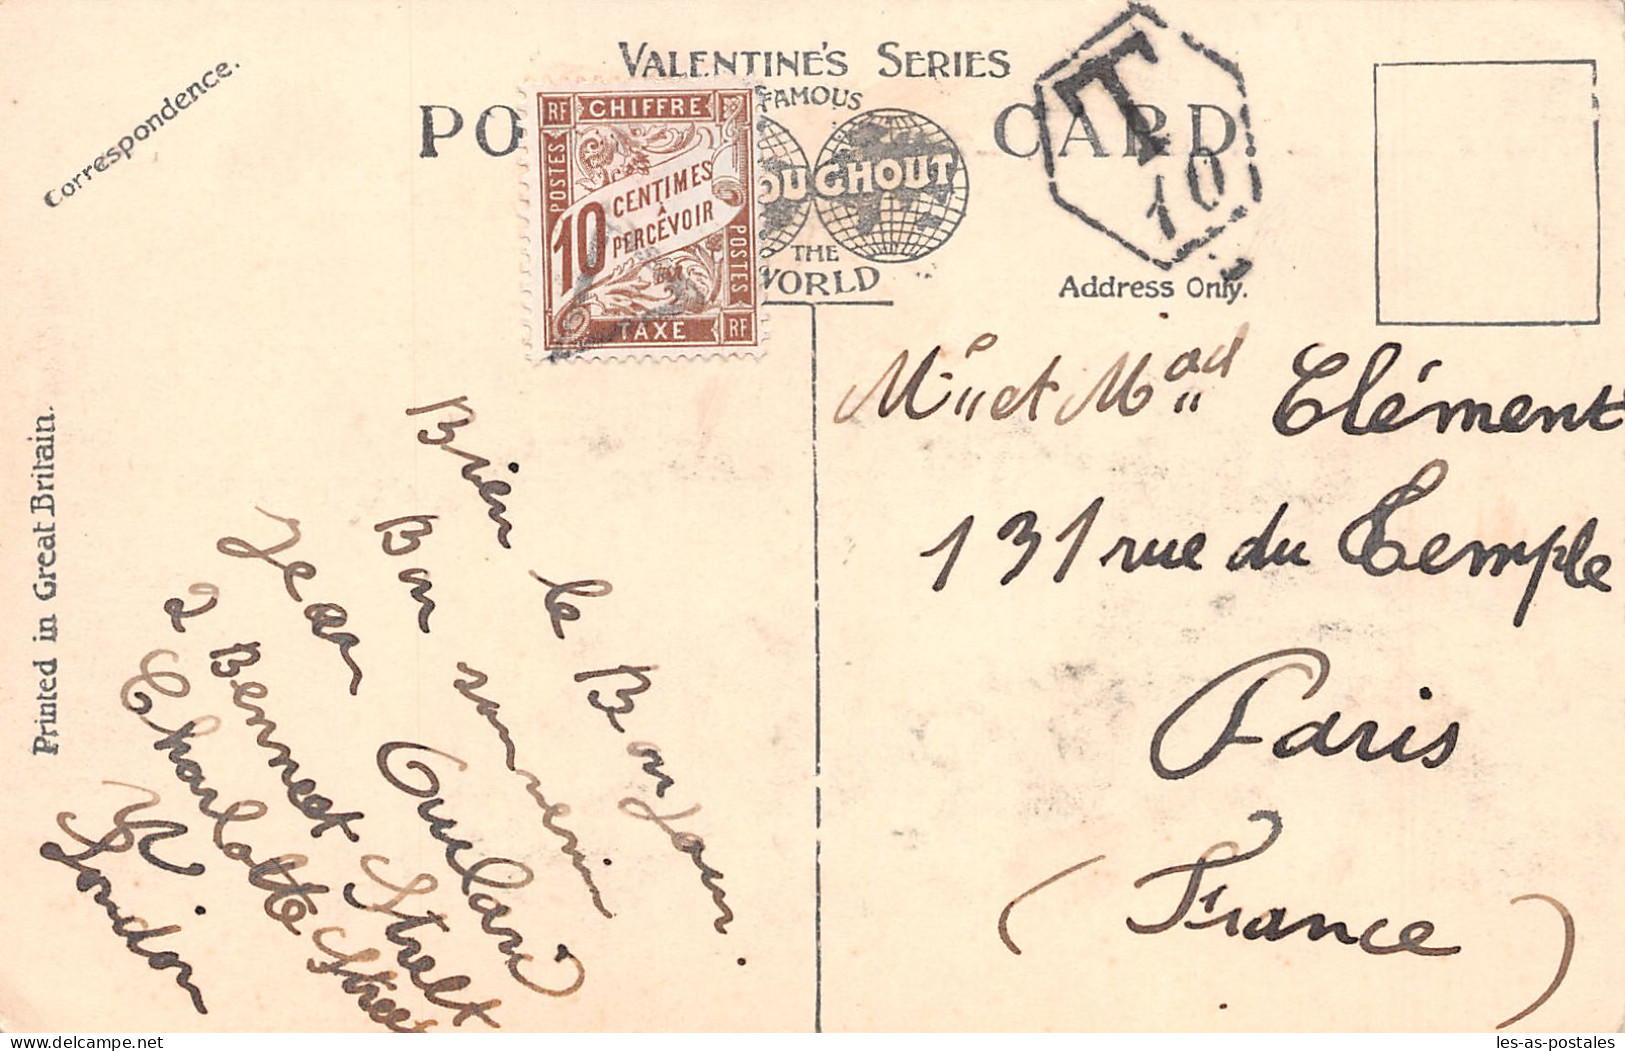 Correspondence.
VALENTINE'S SERIES
FAMOUS
PO CARD
OUGHOUT
THE
WORLD
RF CHIFFRE
POSTES
10 CENTIMES
À
PERCEVOIR
POSTES
TAXE RF
T
10
Address Only.
Printed in Great Britain.
Bien le Bonjour.
Bon souvenir
Jean
2 Bennet Street
Charlotte Street
London
Mr et Mad Clément
131 rue du Temple
Paris
(France)
les-as-postales